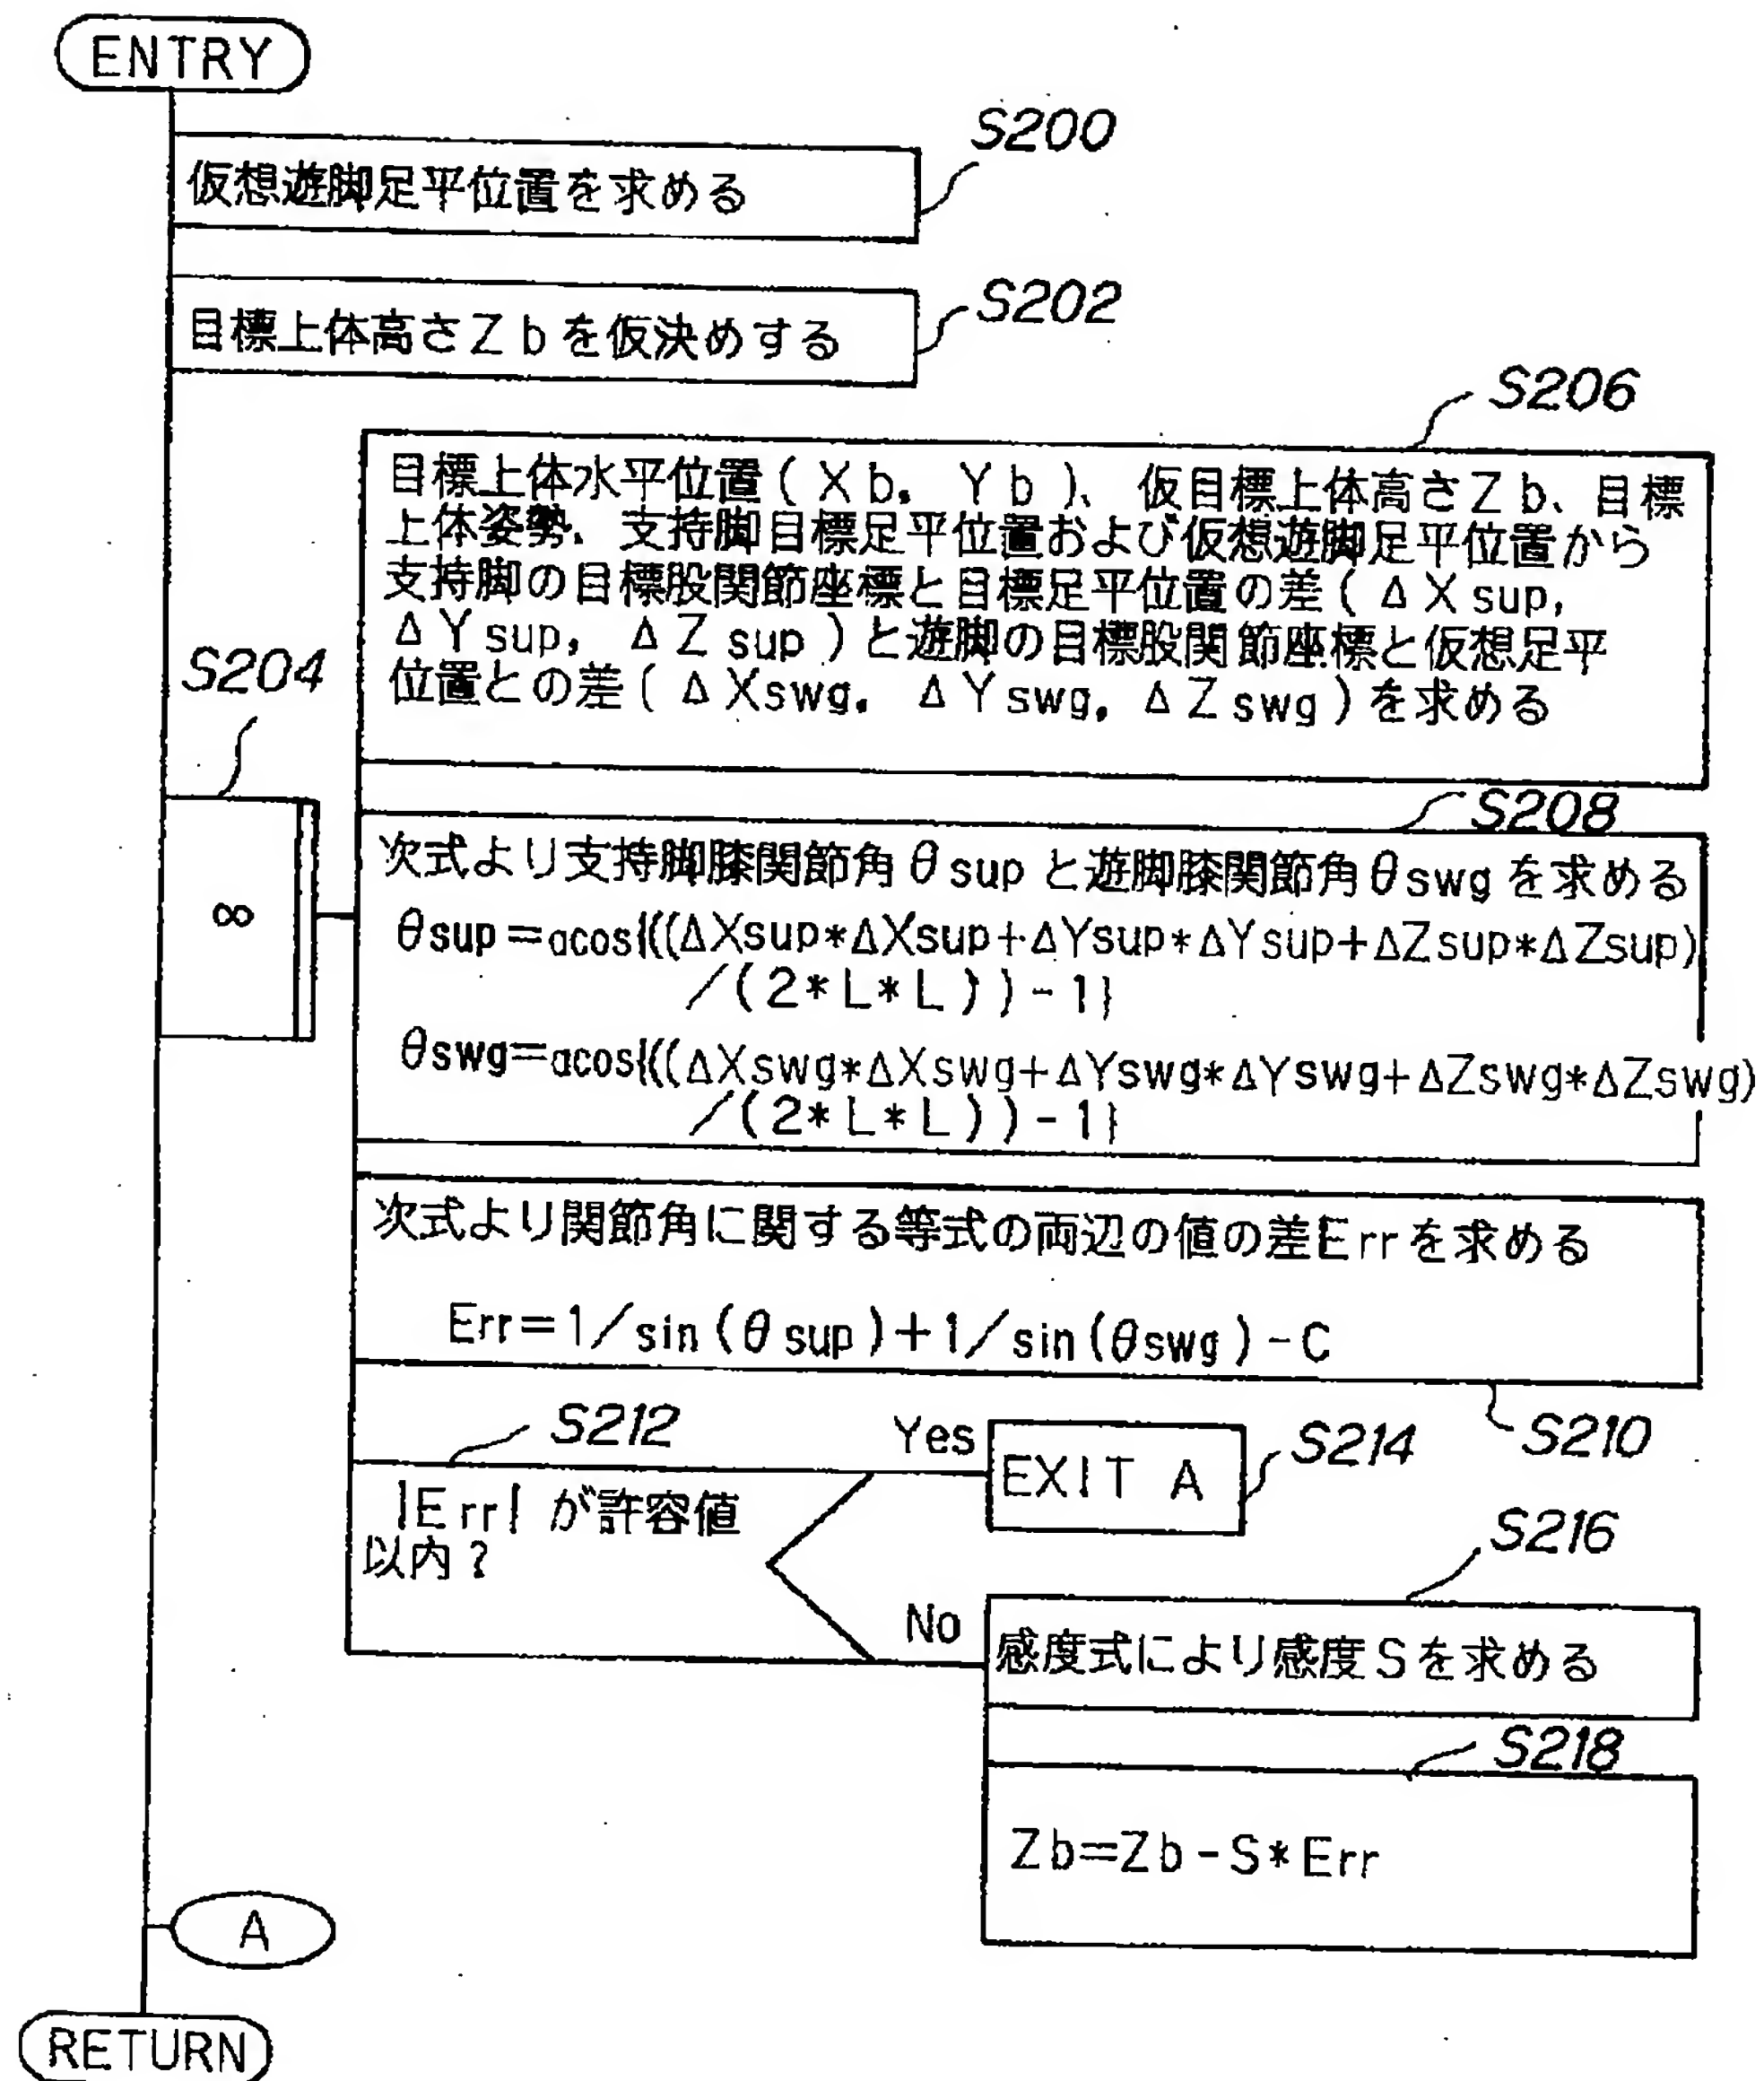 ENTRY
S200
仮想遊脚足平位置を求める
S202
目標上体高さZbを仮決めする
S206
目標上体水平位置(Xb, Yb)、仮目標上体高さZb、目標
上体姿勢、支持脚目標足平位置および仮想遊脚足平位置から
支持脚の目標股関節座標と目標足平位置の差(ΔXsup,
ΔYsup, ΔZsup)と遊脚の目標股関節座標と仮想足平
位置との差(ΔXswg, ΔYswg, ΔZswg)を求める
S204
∞
S208
次式より支持脚膝関節角θsupと遊脚膝関節角θswgを求める
θsup=acos{((ΔXsup*ΔXsup+ΔYsup*ΔYsup+ΔZsup*ΔZsup)
/(2*L*L))-1}
θswg=acos{((ΔXswg*ΔXswg+ΔYswg*ΔYswg+ΔZswg*ΔZswg)
/(2*L*L))-1}
次式より関節角に関する等式の両辺の値の差Errを求める
Err=1/sin(θsup)+1/sin(θswg)-C
S210
S212
|Err|が許容値
以内?
Yes
EXIT A
S214
S216
No
感度式により感度Sを求める
S218
Zb=Zb-S*Err
A
RETURN